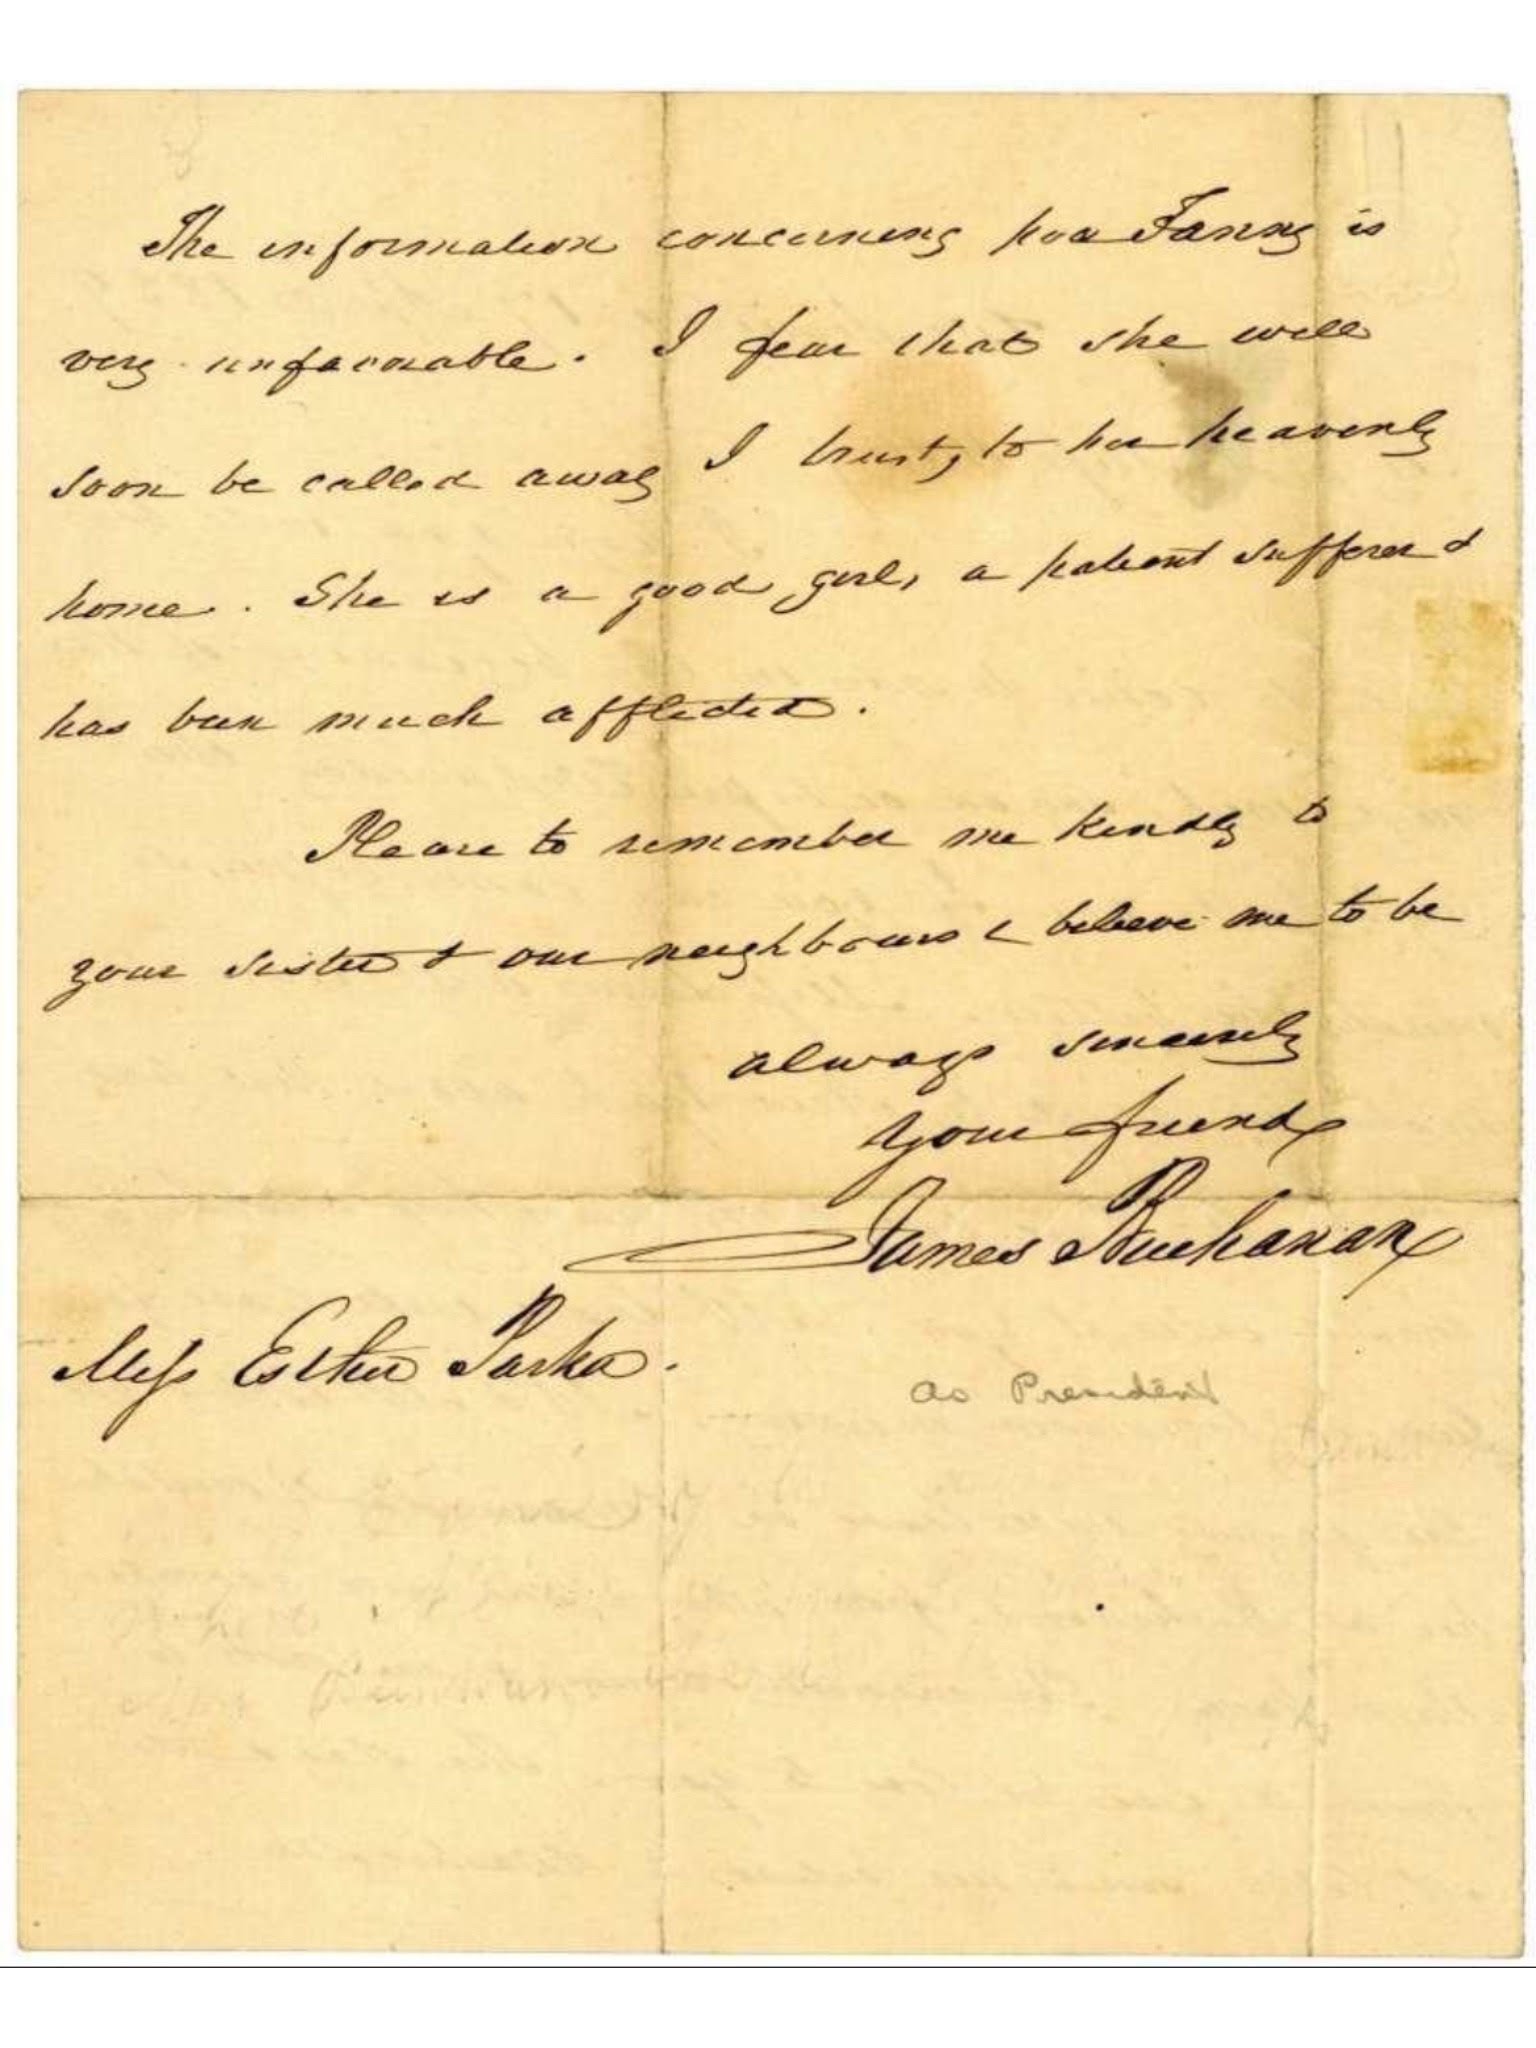 The information concerning poor Fanny is
very unfavorable. I fear that she will
soon be called away I trust, to her heavenly
home. She is a good girl, a patient sufferer &
has been much afflicted.
Please to remember me kindly to
your sister & our neighbours & believe me to be
always sincerely
your friend
James Buchanan
Miss Esther Parker.
as President